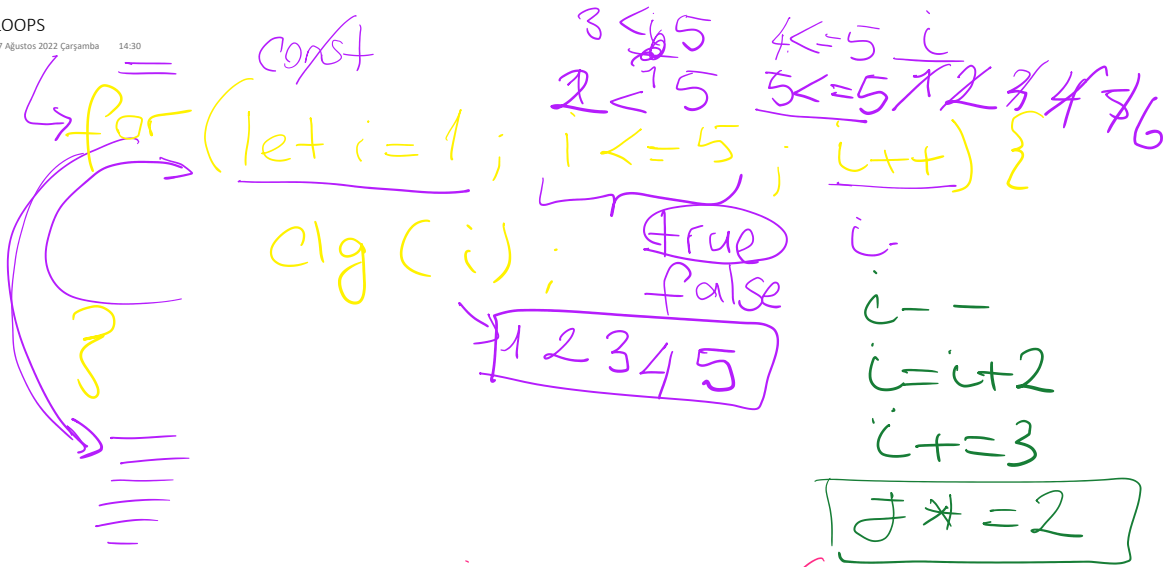 LOOPS
7 Ağustos 2022 Çarşamba 14:30
const
3 < 5
4<=5 i
2 < 5
5<=5 1 2 3 4 5 6
for (let i = 1 ; i <= 5 ; i++) {
clg ( i ) ;
true
false
1 2 3 4 5
}
i-
i--
i=i+2
i+=3
J*=2